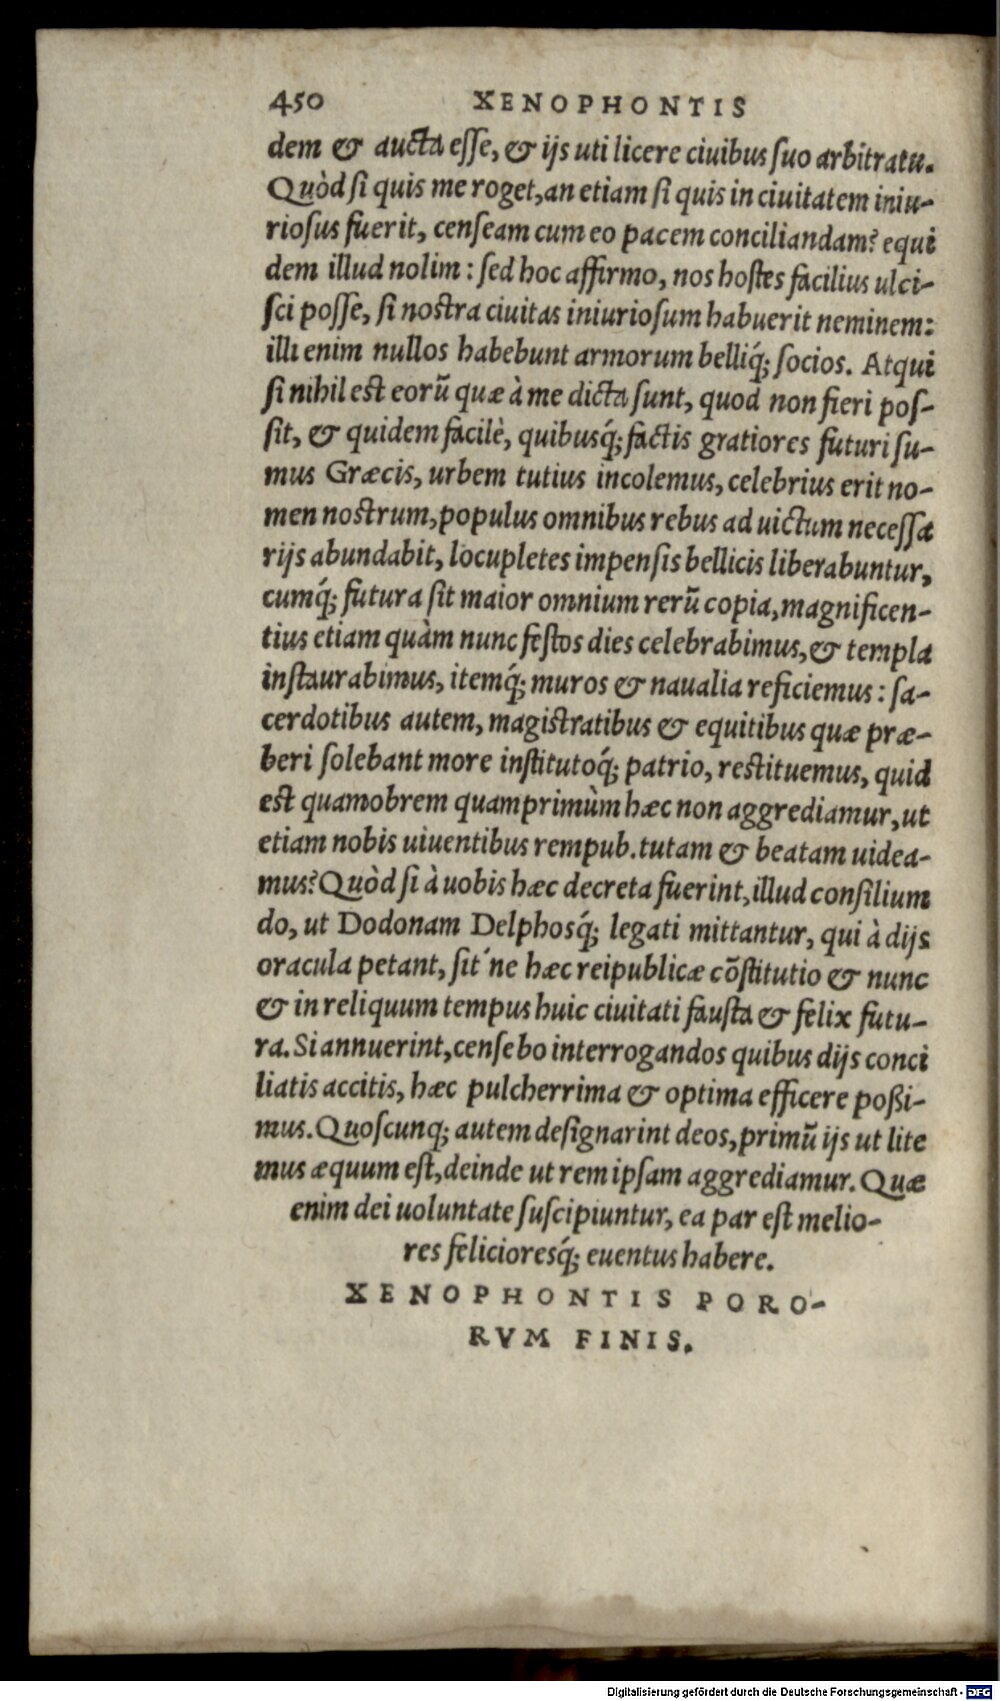 450 XENOPHONTIS
dem & aucta esse, & ijs uti licere ciuibus suo arbitratu.
Quòd si quis me roget, an etiam si quis in ciuitatem iniu-
riosus fuerit, censeam cum eo pacem conciliandam? equi
dem illud nolim: sed hoc affirmo, nos hostes facilius ulci-
sci posse, si nostra ciuitas iniuriosum habuerit neminem:
illi enim nullos habebunt armorum belliq́; socios. Atqui
si nihil est eorū quæ à me dicta sunt, quod non fieri pos-
sit, & quidem facilè, quibusq́; factis gratiores futuri su-
mus Græcis, urbem tutius incolemus, celebrius erit no-
men nostrum, populus omnibus rebus ad uictum necessa
rijs abundabit, locupletes impensis bellicis liberabuntur,
cumq́; futura sit maior omnium rerū copia, magnificen-
tius etiam quàm nunc festos dies celebrabimus, & templa
instaurabimus, itemq́; muros & naualia reficiemus: sa-
cerdotibus autem, magistratibus & equitibus quæ præ-
beri solebant more institutoq́; patrio, restituemus, quid
est quamobrem quamprimùm hæc non aggrediamur, ut
etiam nobis uiuentibus rempub. tutam & beatam uidea-
mus? Quòd si à uobis hæc decreta fuerint, illud consilium
do, ut Dodonam Delphosq́; legati mittantur, qui à dijs
oracula petant, sit´ne hæc reipublicæ cōstitutio & nunc
& in reliquum tempus huic ciuitati fausta & felix futu-
ra. Si annuerint, censebo interrogandos quibus dijs conci
liatis accitis, hæc pulcherrima & optima efficere poßi-
mus. Quoscunq; autem designarint deos, primū ijs ut lite
mus æquum est, deinde ut rem ipsam aggrediamur. Quæ
enim dei uoluntate suscipiuntur, ea par est melio-
res felicioresq́; euentus habere.
XENOPHONTIS PORO-
RVM FINIS.
Digitalisierung gefördert durch die Deutsche Forschungsgemeinschaft - DFG